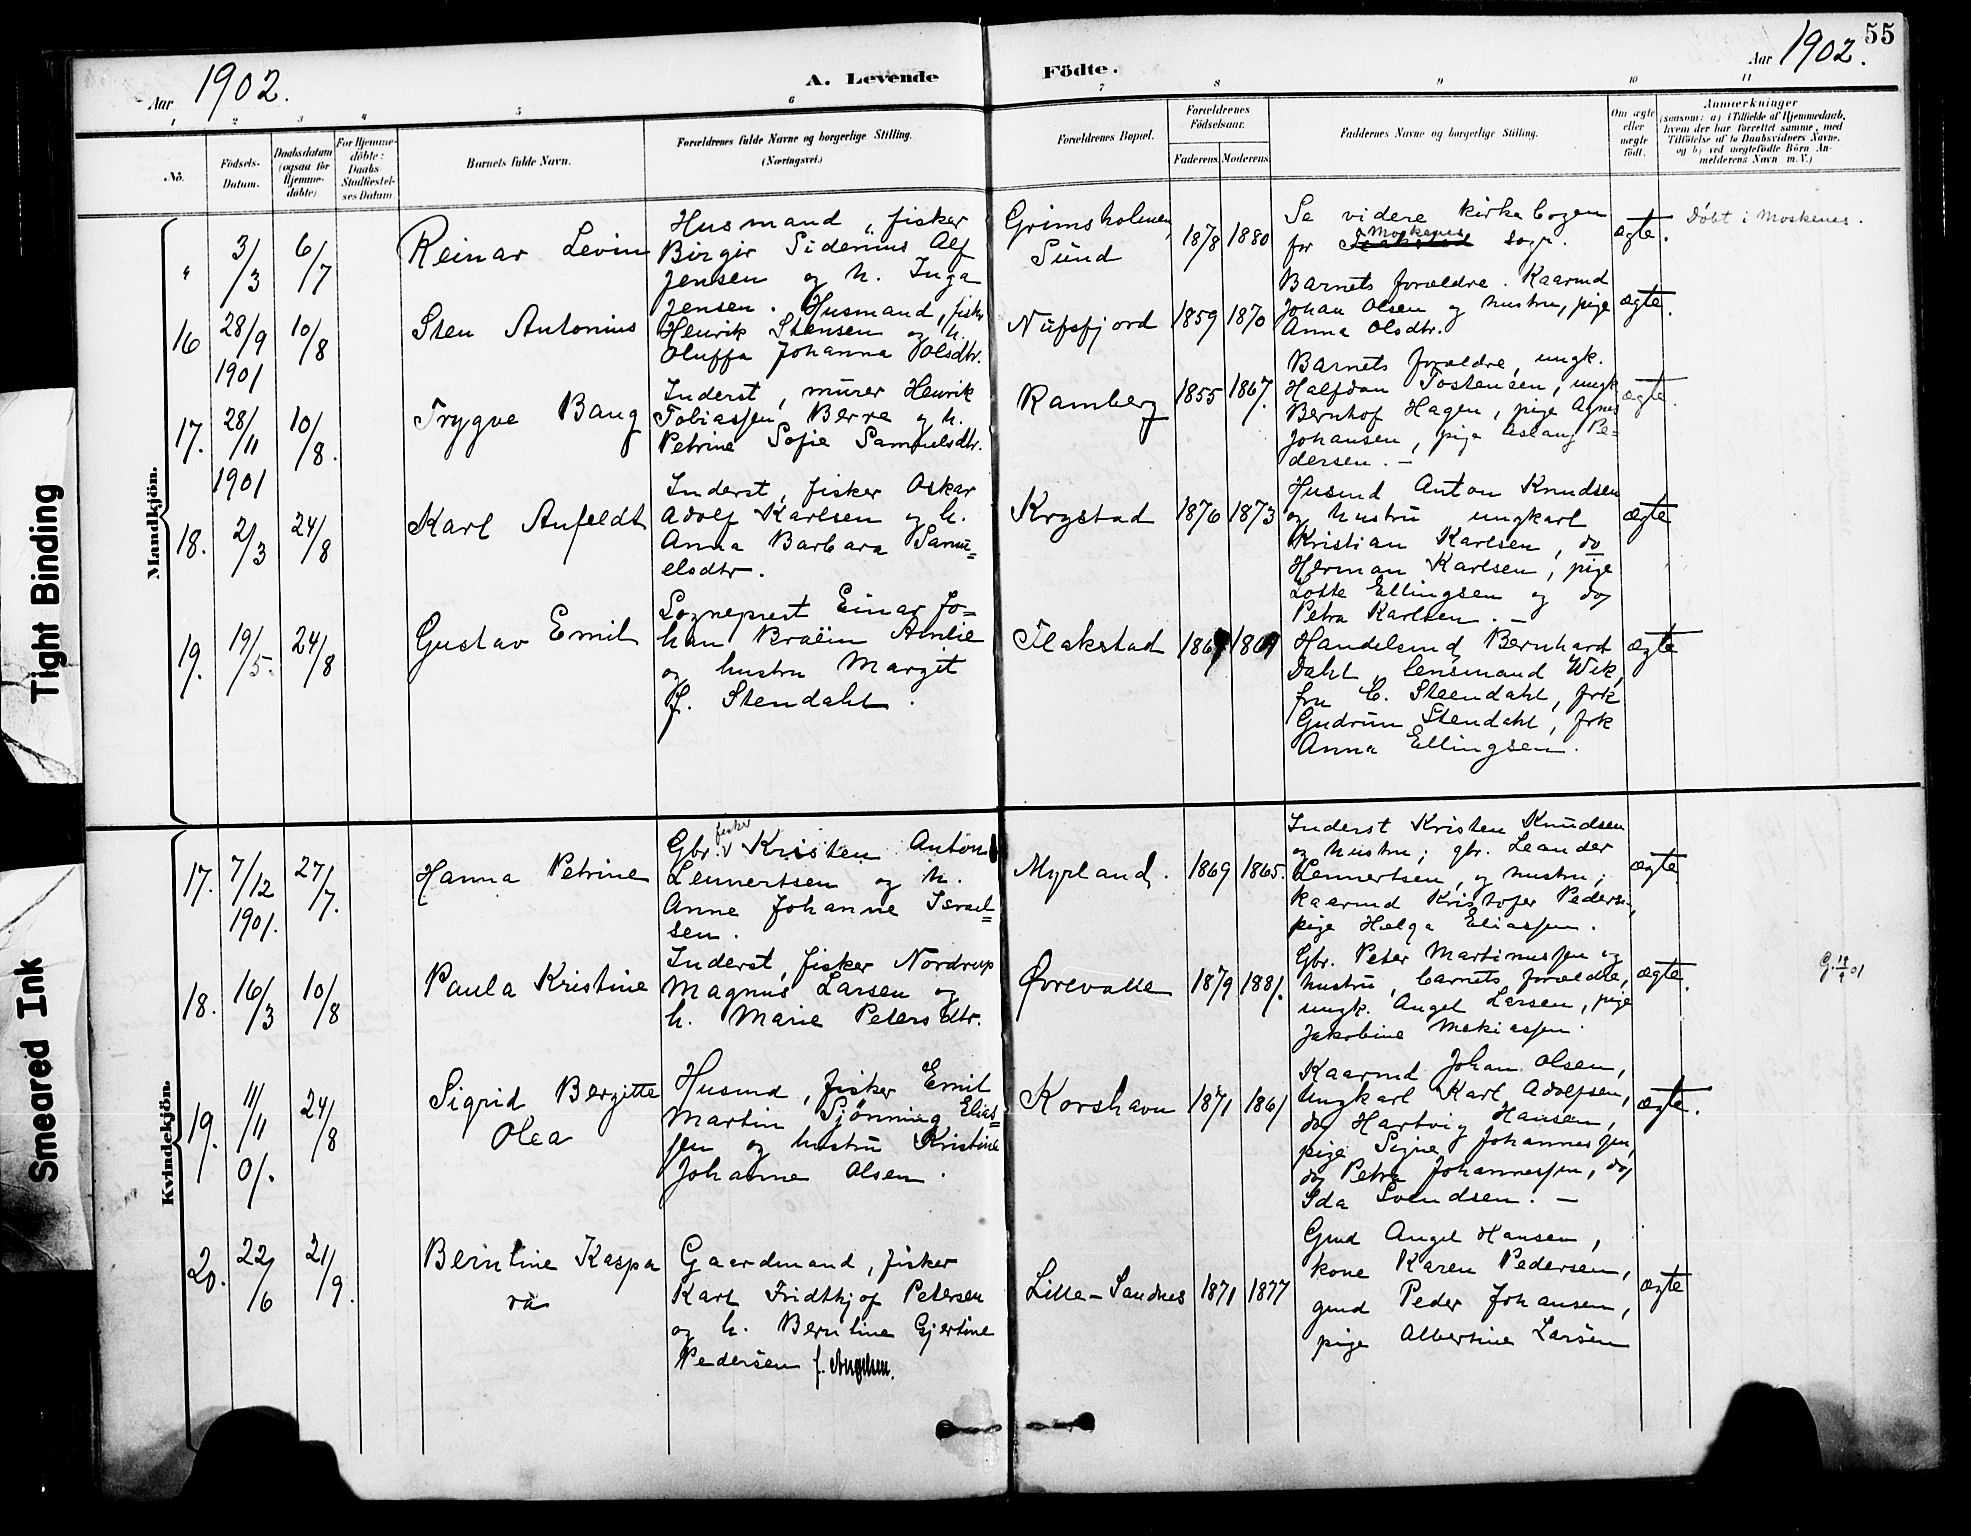 55
Aar 1902.
A. Levende Födte.
Aar 1902.
1 2 3 4 5 6 7 8 9 10 11
No.
Födsels-
Datum.
Daabsdatum
(ogsaa for
Hjemme-
döbte)
For Hjemme-
döbte:
Daabs-
Stadfæstel-
ses Datum.
Barnets fulde Navn.
Forældrenes fulde Navne og borgerlige Stilling.
(Næringsvei.)
Forældrenes Bopæl.
Forældrenes
Födselsaar.
Faderens. Moderens.
Faddernes Navne og borgerlige Stilling.
Om ægte
eller
uægte
födt.
Anmærkninger
(saasom: a) i Tilfælde af Hjemmedaab,
hvem der har forrettet samme, med
Tilföielse af to Daabsvidners Navne,
og b) ved uægtefödte Börn An-
melderens Navn m. V.)
Mandkjön.
" 3/3 6/7
Reinar Levin
Husmand, fisker
Birger Sidenius Alf
Jensen og h. Inga
Jensen.
Grimsholmen,
Sund
1878 1880
Se videre kirkebogen
for Moskenes sogn.
ægte.
Döbt i Moskenes.
16 28/9 1901 10/8
Sten Antonius
Husmand, fisker
Henrik Stensen og h.
Oluffa Johanna Olsdtr.
Nufsfjord
1859 1870
Barnets forældre. Kaarmd
Johan Olsen og hustru, pige
Anna Olsdtr.
ægte.
17. 28/11 1901 10/8.
Trygve Bang
Inderst, murer Henrik
Tobiassen Berre og h.
Petrine Sofie Samuelsdtr.
Ramberg
1855 1867.
Barnets forældre, ungk.
Halfdan Tostensen, ungk
Bernhof Hagen, pige Agnes
Johansen, pige Aslaug Pe=
dersen. –
ægte.
18. 2/3 24/8
Karl Anfeldt
Inderst, fisker Oskar
Adolf Karlsen og h.
Anna Barbara Samu=
elsdtr.
Krystad
1876 1873
Husmd Anton Knudsen
og hustru ungkarl
Kristian Karlsen, do
Herman Karlsen, pige
Lotte Ellingsen og do
Petra Karlsen. –
ægte
19. 19/5. 24/8
Gustav Emil
Sogneprest Einar Jo=
han Amlie
og hustru Margit
f. Stendahl.
Flakstad
Handelsmd Bernhard
Dahl, lensmand Wik,
fru C. Steendahl, frk
Gudrun Stendahl, frk
Anna Ellingsen.
ægte
Kvindekjön.
17. 7/12 1901. 27/7.
Hanna Petrine
Gbr. fisker Kristen Anton
Lennertsen og h.
Anne Johanne Israel=
sen.
Myrland.
1869 1865.
Inderst Kristen Knudsen
og hustru; gbr. Leander
Lennertsen, og hustru;
kaarmd Kristofer Pedersen,
pige Helga Eliassen.
ægte
18. 16/3 10/8
Paula Kristine
Inderst, fisker Nordrup
Magnus Larsen og
h. Marie Petersdtr.
Øvrevalle
1879 1881.
Gbr. Peter Martinussen og
hustru, barnets forældre,
ungk. Angel Larsen, pige
Jakobine
ægte.
19. 11/11 01. 24/8
Sigrid Bergitte
Olea
Husmd, fisker Emil
Martin Sjönning Elias=
sen og hustru Kristine
Johanne Olsen.
Korshavn
1871 1861
Kaarmd Johan Olsen,
Ungkarl Karl Adolfsen,
do Hartvig Hansen,
pige Signe Johannessen,
do Petra Johannessen, do
Ida Svendsen. –
ægte.
20. 22/6 21/9.
Berntine Kaspa
ra
Gaardmand, fisker
Karl Fridthjof Petersen
og h. Berntine Gjertine
Pedersen f. Angelsen.
Lille-Sandnes
1871 1877
Gmd Angel Hansen,
kone Karen Pedersen,
gmd Peder Johansen,
pige Albertine Larsen
ægte
Tight Binding
Smeared Ink